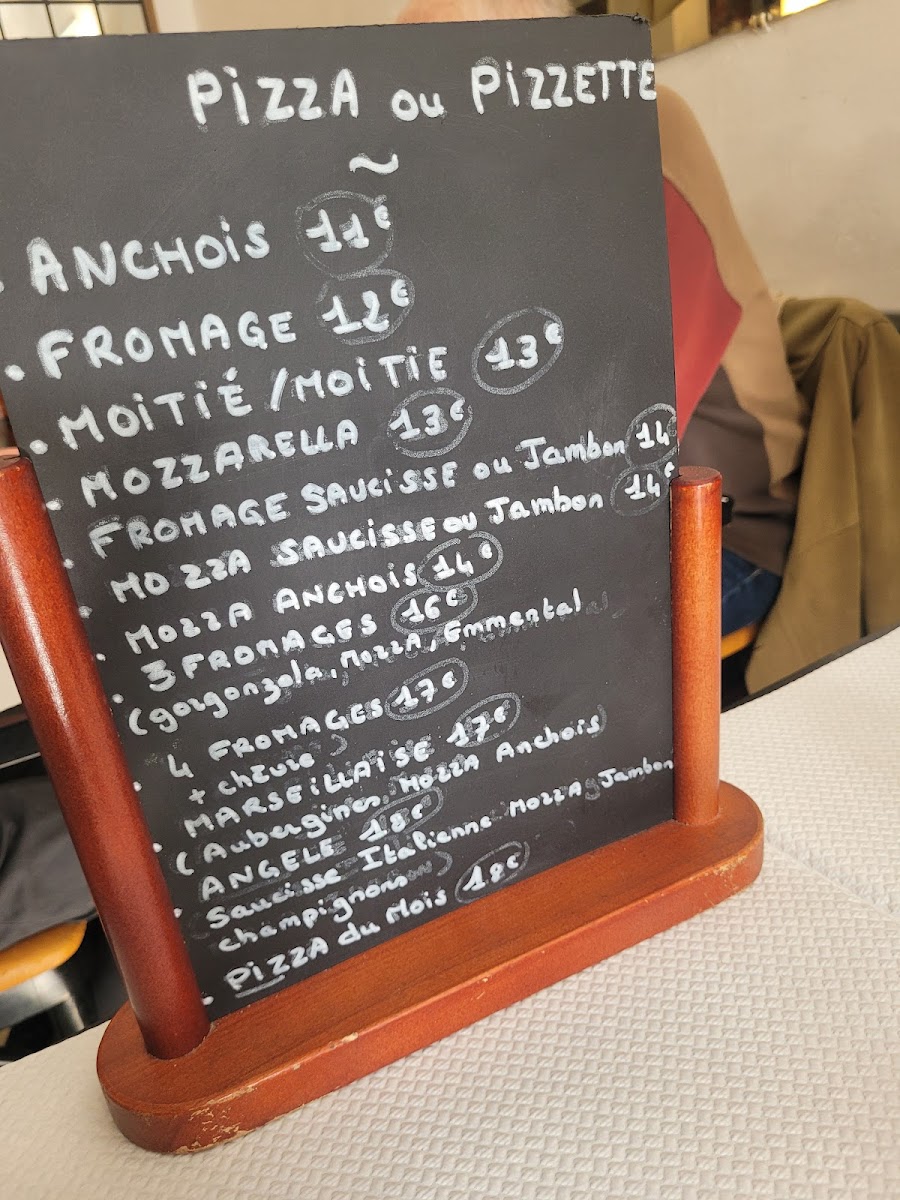 PiZZA ou PiZZETTE
~
. ANCHOiS 11€
. FROMAGE 12€
. MOiTiÉ / MOiTiE 13€
. MOZZARELLA 13€
. FROMAGE SAUCiSSE ou Jambon 14€
. MOZZA SAUCiSSE ou Jambon 14€
. MOZZA ANCHOiS 14€
. 3 FROMAGES 16€
(gorgonzola, MOZZA, Emmental
. 4 FROMAGES 17€
+ chèvre )
. MARSEiLLAiSE 17€
(Aubergines, MOZZA Anchois)
. ANGELE 18€
Saucisse Italienne MOZZA, Jambon
champignons )
. PiZZA du Mois 18€